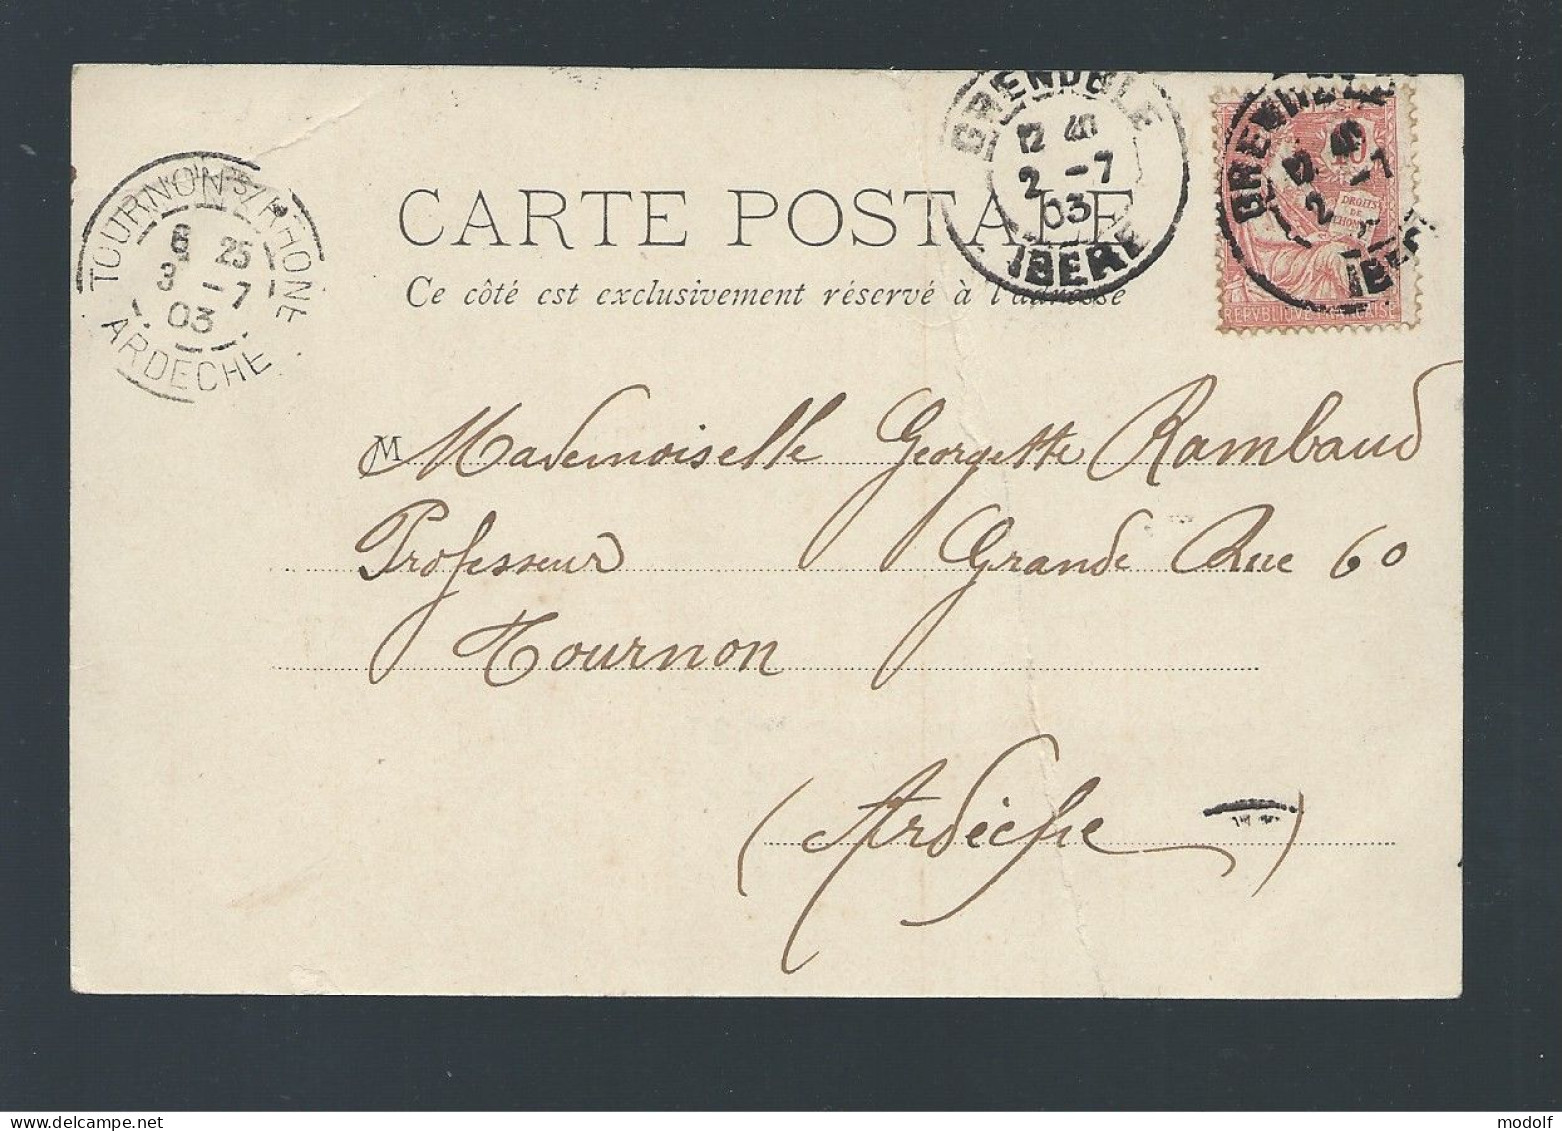 GRENOBLE
12 40
2 -7
03
ISERE
GRENOBLE
12 40
2 -7
ISERE
10
DROITS
DE
L'HOMME
REPVBLIQVE FRANÇAISE
TOURNON-S/-RHONE
6 25
3 -7
03
ARDECHE
CARTE POSTALE
Ce côté est exclusivement réservé à l'adresse
M Mademoiselle Georgette Rambaud
Professeur Grande Rue 60
Tournon
(Ardèche)
modolf
www.delcampe.net